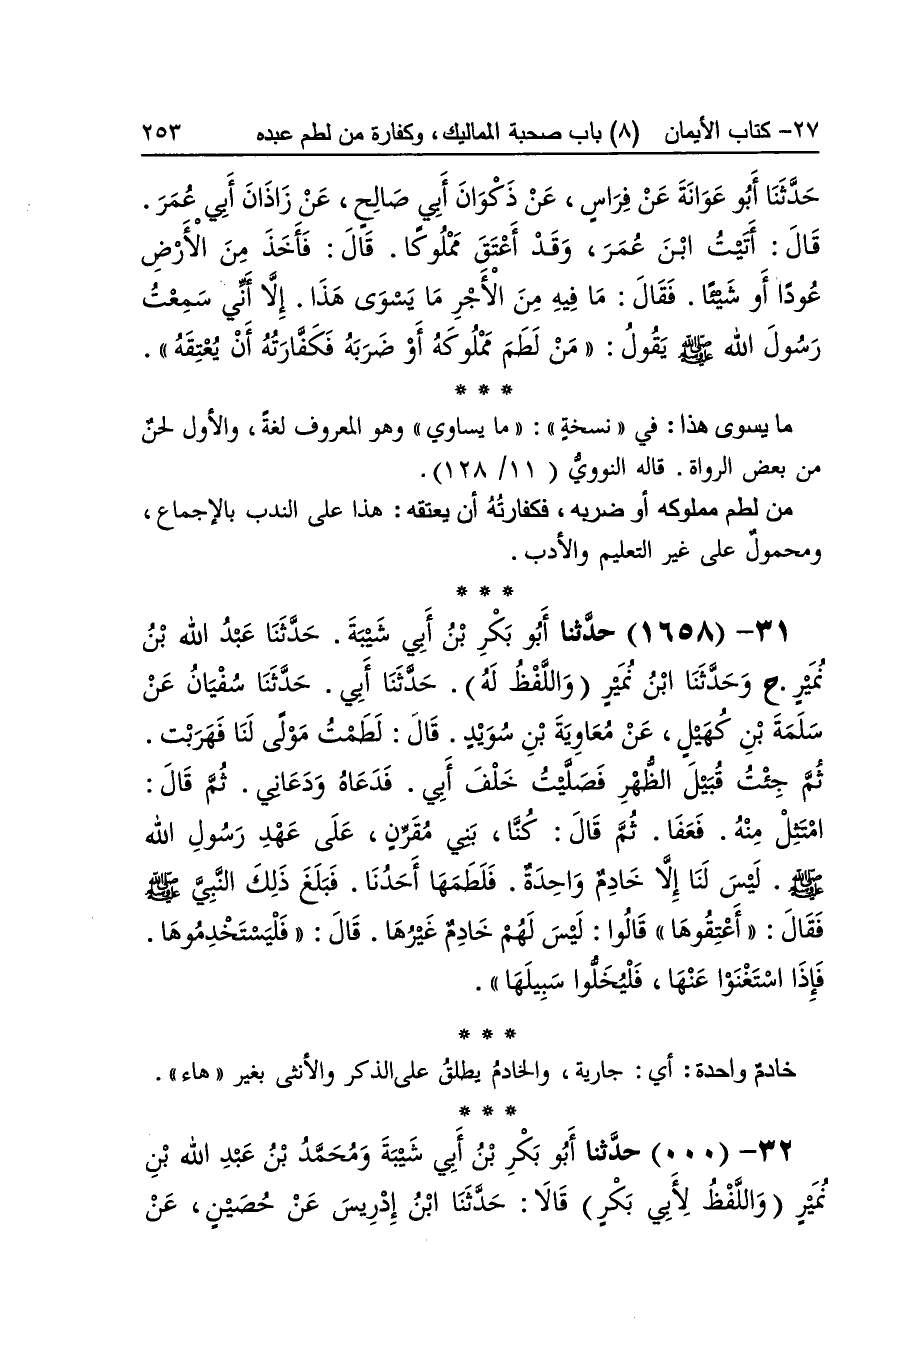 ٢٧- كتاب الأيمان (٨) باب صحبة المماليك، وكفارة من لطم عبده ٢٥٣
حَدَّثَنَا أَبُو عَوَانَةَ عَنْ فِرَاسٍ ، عَنْ ذَكْوَانَ أَبِي صَالِحٍ ، عَنْ زَاذَانَ أَبِي عُمَرَ .
قَالَ : أَتَيْتُ ابْنَ عُمَرَ ، وَقَدْ أَعْتَقَ مَمْلُوكًا . قَالَ : فَأَخَذَ مِنَ الْأَرْضِ
عُودًا أَو شَيْئًا . فَقَالَ : مَا فِيهِ مِنَ الْأَجْرِ مَا يَسْوَى هَذَا . إِلَّا أَنِّي سَمِعْتُ
رَسُولَ الله ﷺ يَقُولُ : « مَنْ لَطَمَ مَمْلُوكَهُ أَوْ ضَرَبَهُ فَكَفَّارَتُهُ أَنْ يُعْتِقَهُ » .
* * *
ما يسوى هذا : في « نسخةٍ » : « ما يساوي » وهو المعروف لغةً ، والأول لحنٌ
من بعض الرواة . قاله النوويُّ ( ١١/ ١٢٨) .
من لطم مملوكه أو ضربه ، فكفارتُهُ أن يعتقه : هذا على الندب بالإجماع ،
ومحمولٌ على غير التعليم والأدب .
* * *
٣١- (١٦٥٨) حدَّثنا أَبُو بَكْرِ بْنُ أَبِي شَيْبَةَ . حَدَّثَنَا عَبْدُ الله بْنُ
نُمَيْرٍ .ح وَحَدَّثَنَا ابْنُ نُمَيْرٍ (وَاللَّفْظُ لَهُ) . حَدَّثَنَا أَبِي . حَدَّثَنَا سُفْيَانُ عَنْ
سَلَمَةَ بْنِ كُهَيْلٍ ، عَنْ مُعَاوِيَةَ بْنِ سُوَيْدٍ . قَالَ : لَطَمْتُ مَوْلًى لَنَا فَهَرَبْت .
ثُمَّ جِئْتُ قُبَيْلَ الظُّهْرِ فَصَلَّيْتُ خَلْفَ أَبِي . فَدَعَاهُ وَدَعَانِي . ثُمَّ قَالَ :
امْتَثِلْ مِنْهُ . فَعَفَا . ثُمَّ قَالَ : كُنَّا ، بَنِي مُقَرِّنٍ ، عَلَى عَهْدِ رَسُولِ الله
ﷺ . لَيْسَ لَنَا إِلَّا خَادِمٌ وَاحِدَةٌ . فَلَطَمَهَا أَحَدُنَا . فَبَلَغَ ذَلِكَ النَّبِيَّ ﷺ
فَقَالَ : « أَعْتِقُوهَا » قَالُوا : لَيْسَ لَهُمْ خَادِمٌ غَيْرُهَا . قَالَ : « فَلْيَسْتَخْدِمُوهَا .
فَإِذَا اسْتَغْنَوْا عَنْهَا ، فَلْيُخَلُّوا سَبِيلَهَا » .
* * *
خادمٌ واحدة : أي : جارية ، والخادمُ يطلقُ على الذكر والأنثى بغير « هاء » .
* * *
٣٢- (٠٠٠) حدَّثنا أَبُو بَكْرِ بْنُ أَبِي شَيْبَةَ وَمُحَمَّدُ بْنُ عَبْدِ الله بْنِ
نُمَيْرٍ (وَاللَّفْظُ لِأَبِي بَكْرٍ) قَالَا : حَدَّثَنَا ابْنُ إِدْرِيسَ عَنْ حُصَيْنٍ ، عَنْ